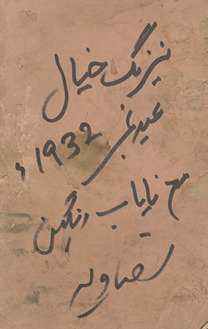 نیرنگ خیال
عید نمبر 1932ء
مع نایاب رنگین
تصاویر